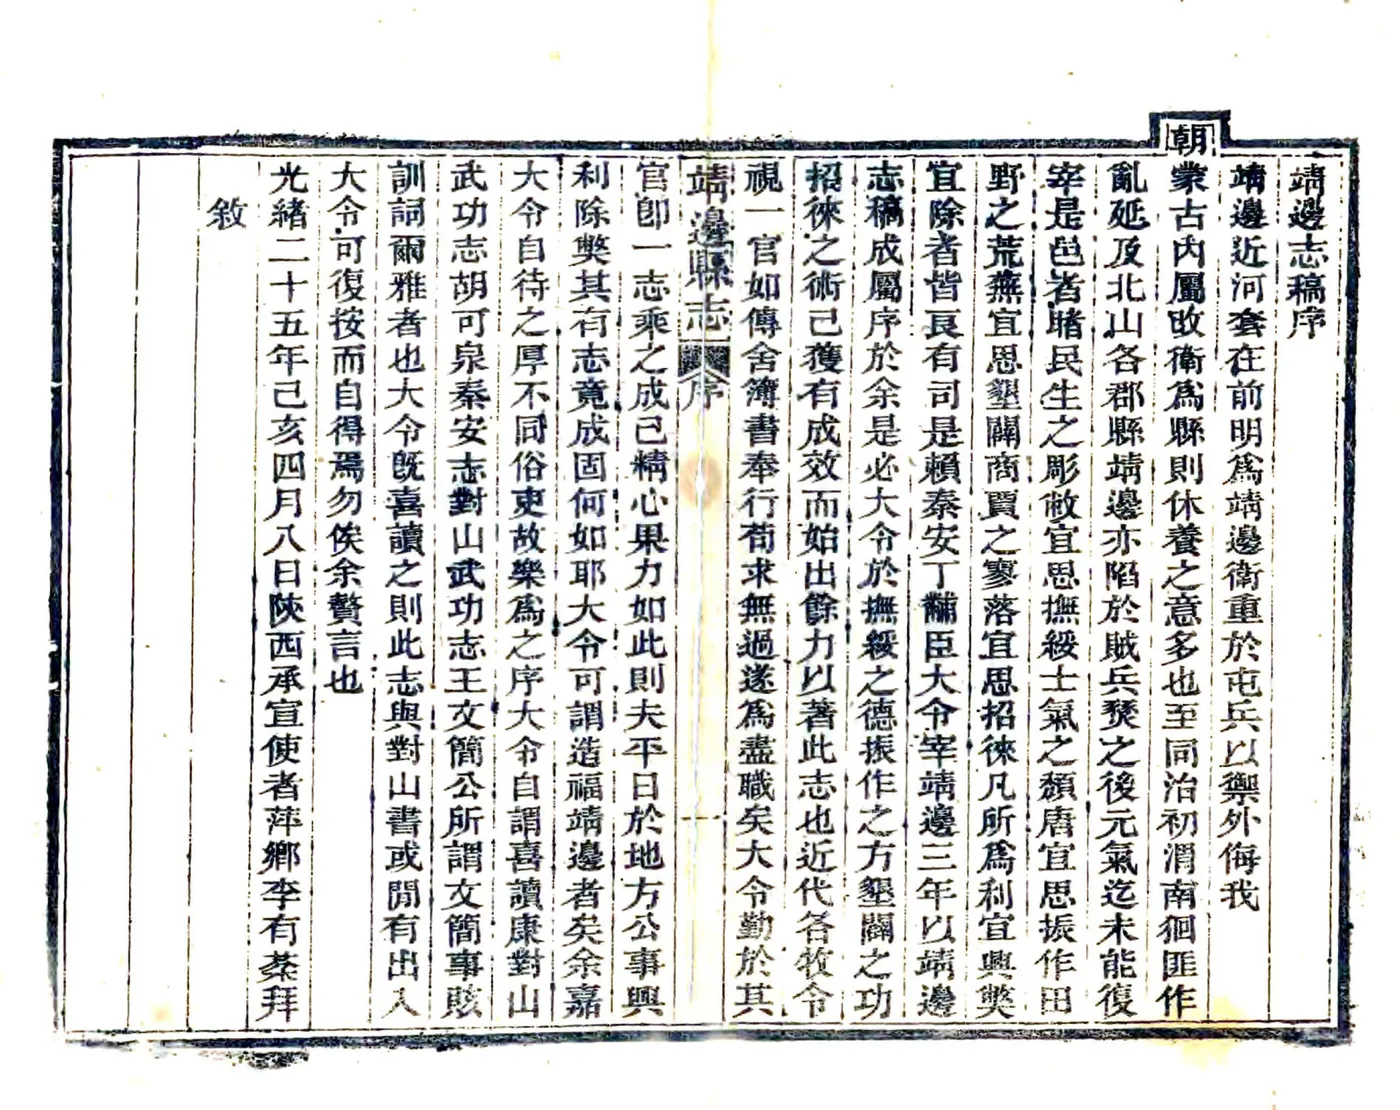 靖邊志稿序
靖邊近河套在前明爲靖邊衛重於屯兵以禦外侮我
朝蒙古內屬改衛爲縣則休養之意多也至同治初渭南徊匪作
亂延及北山各郡縣靖邊亦陷於賊兵燹之後元氣迄未能復
宰是邑者睹民生之彫敝宜思撫綏士氣之頹唐宜思振作田
野之荒蕪宜思墾闢商賈之寥落宜思招徠凡所爲利宜興獘
宜除者皆良有司是賴秦安丁黼臣大令宰靖邊三年以靖邊
志稿成屬序於余是必大令於撫綏之德振作之方墾闢之功
招徠之術己獲有成效而始出餘力以著此志也近代各牧令
視一官如傳舍簿書奉行苟求無過遂爲盡職矣大令勤於其
靖邊縣志 序 一
官卽一志乘之成己精心果力如此則夫平日於地方公事興
利除獘其有志竟成固何如耶大令可謂造福靖邊者矣余嘉
大令自待之厚不同俗吏故樂爲之序大令自謂喜讀康對山
武功志胡可泉秦安志對山武功志王文簡公所謂文簡事賅
訓詞爾雅者也大令旣喜讀之則此志與對山書或閒有出入
大令可復按而自得焉勿俟余贅言也
光緒二十五年己亥四月八日陝西承宣使者萍鄉李有棻拜
敘